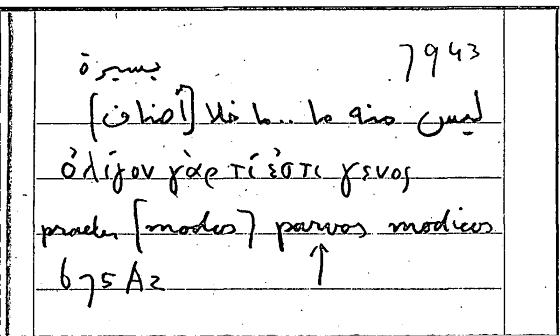 7943
يسيرة
ليس منه ما .. ما خلا [أصناف]
ὀλίγον γάρ τί ἐστι γενος
praeter [modos] parvos modicos
675 A2 ↑